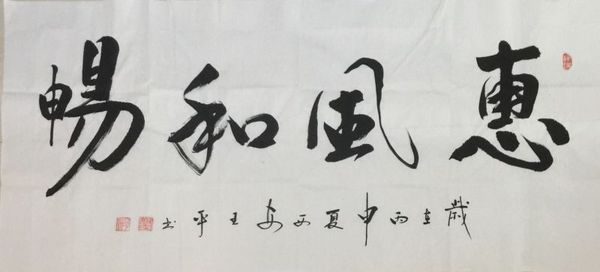 惠風和暢
歲在丙申夏西安王平书